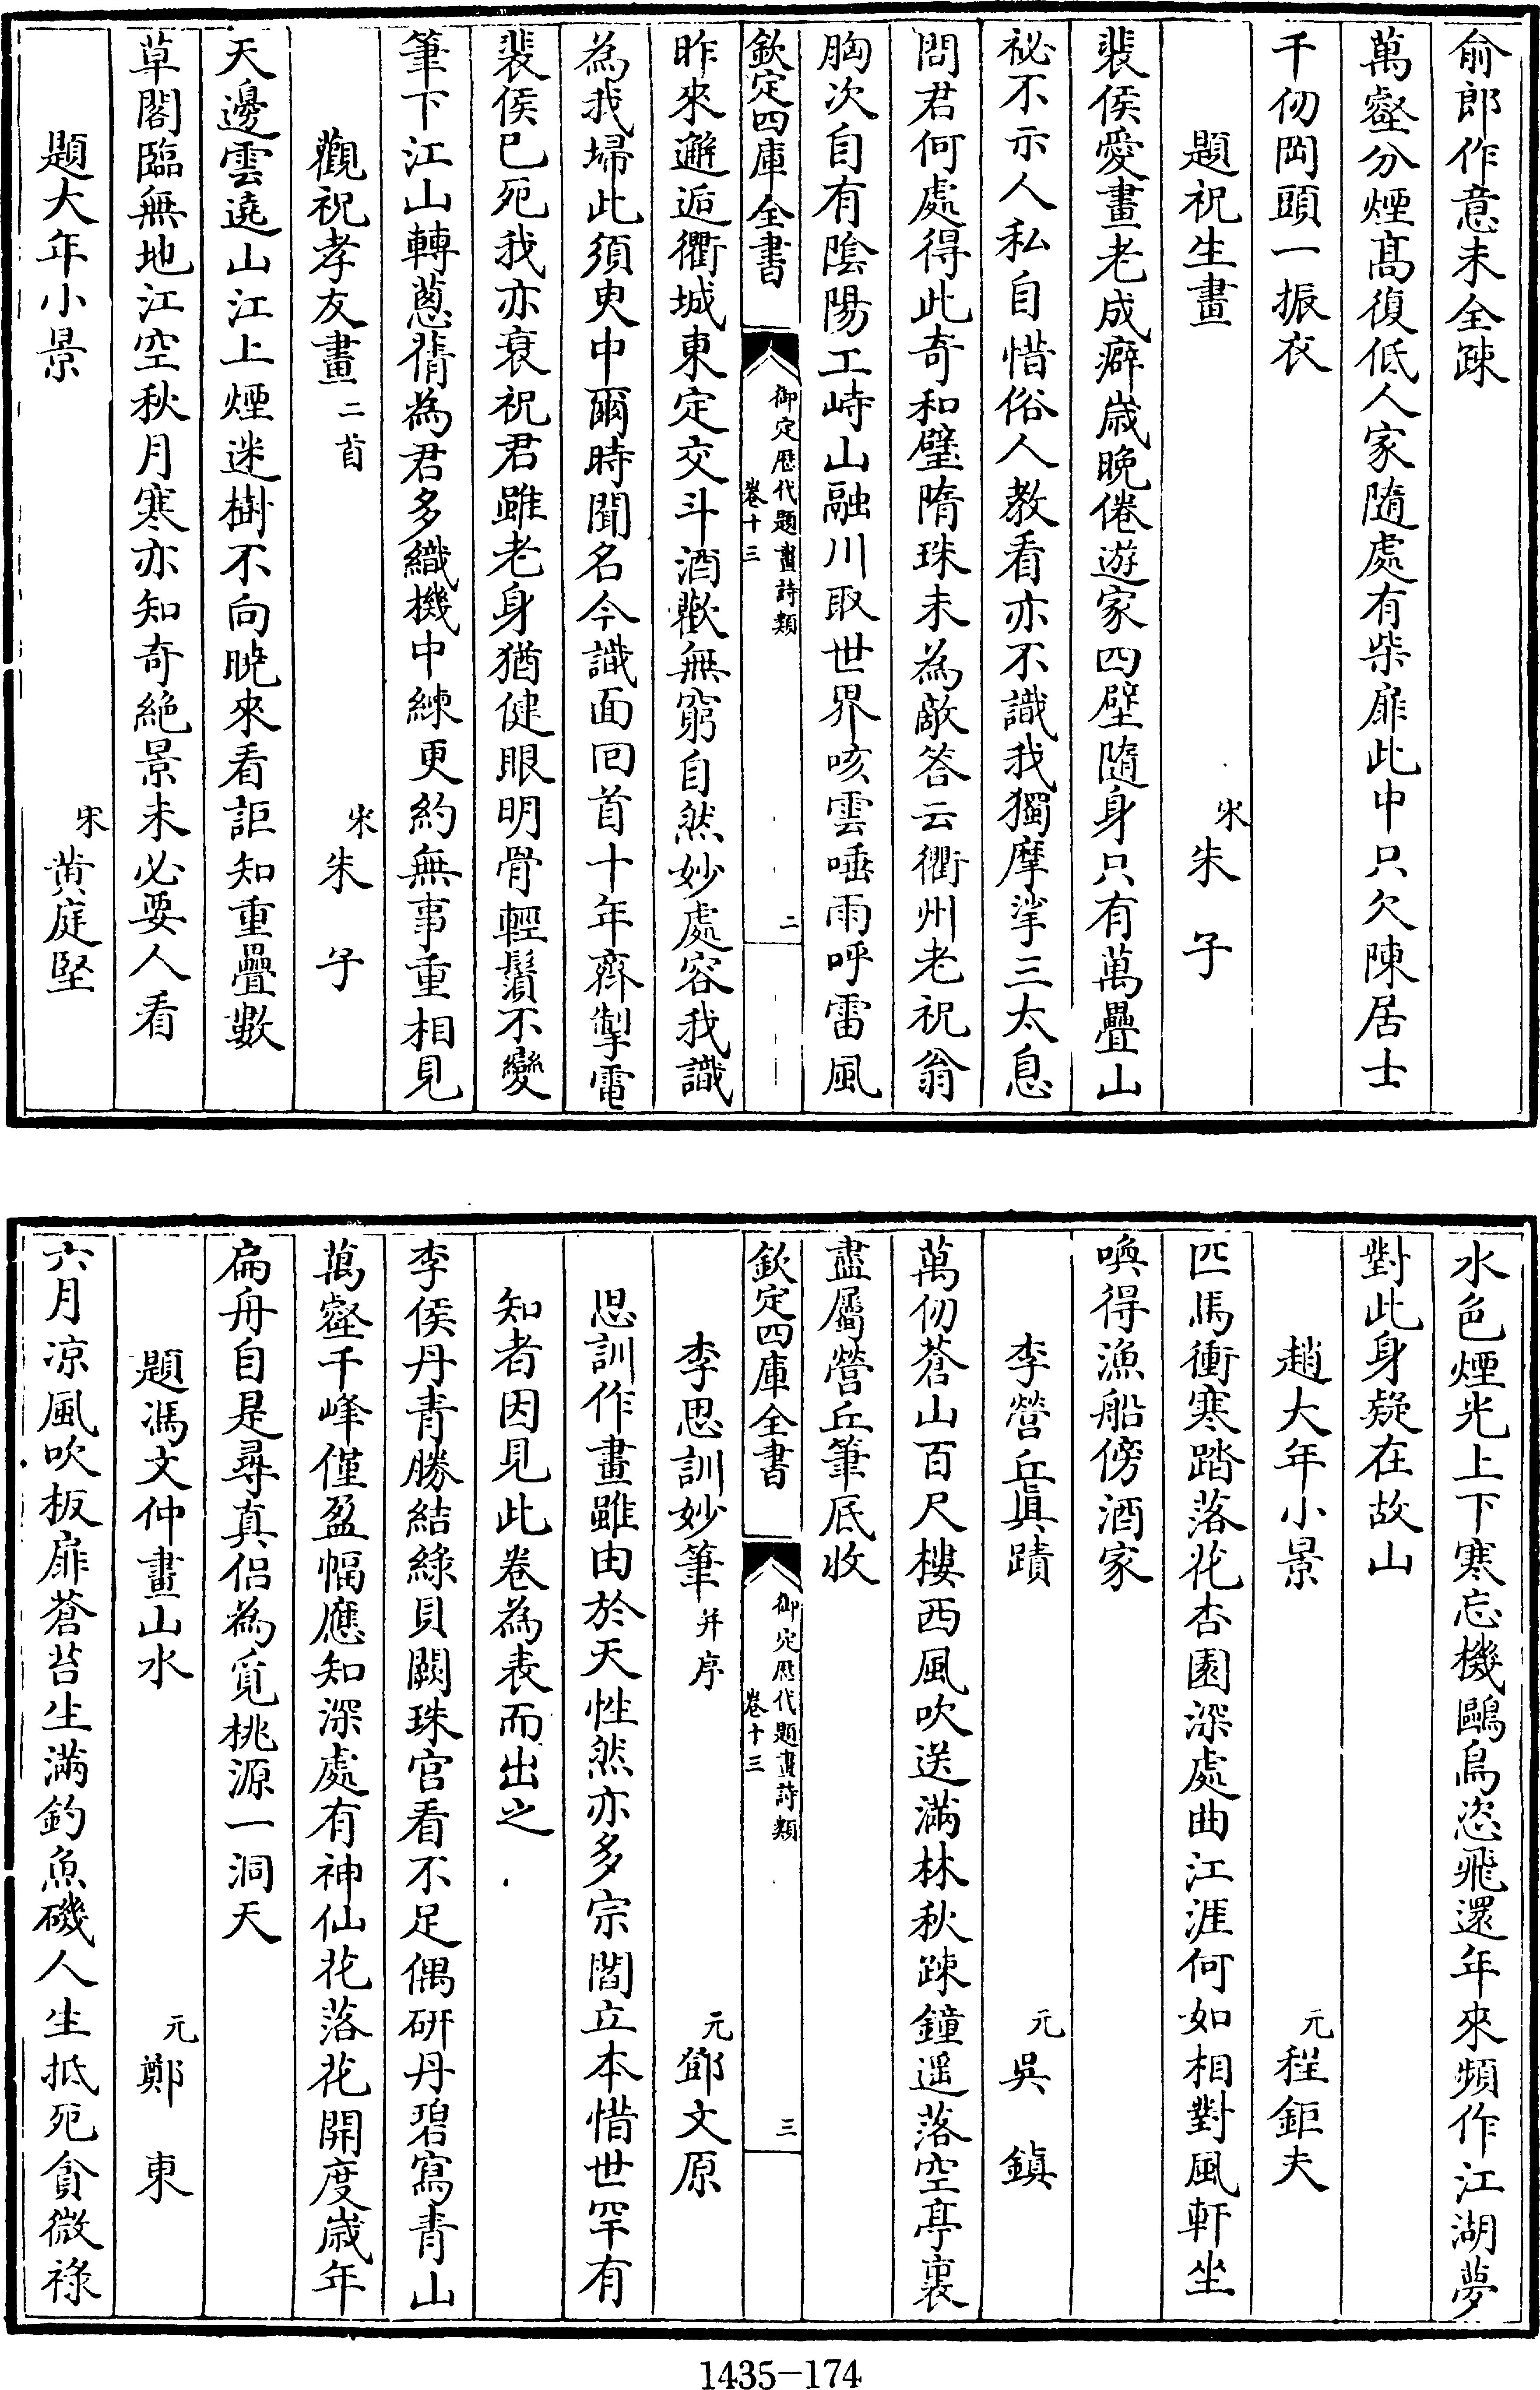 俞郎作意未全疎
萬壑分煙髙復低人家隨處有柴扉此中只欠陳居士
千仞岡頭一振衣
題祝生畫 宋 朱子
裴侯愛畫老成癖歲晚倦遊家四壁隨身只有萬疊山
祕不示人私自惜俗人教看亦不識我獨摩挲三太息
問君何處得此奇和璧隋珠未為敵答云衢州老祝翁
胸次自有隂陽工峙山融川取世界咳雲唾雨呼雷風
欽定四庫全書 御定歴代題畫詩類 卷十三 二
昨來邂逅衢城東定交斗酒歡無窮自然妙處容我識
為我埽此須臾中爾時聞名今識面回首十年齊掣電
裴侯已死我亦衰祝君雖老身猶健眼明骨輕鬚不變
筆下江山轉蔥蒨為君多織機中練更約無事重相見
觀祝孝友畫 二首 宋 朱子
天邊雲遶山江上煙迷樹不向晚來看詎知重疊數
草閣臨無地江空秋月寒亦知奇絶景未必要人看
題大年小景 宋 黄庭堅
水色煙光上下寒忘機鷗鳥恣飛還年來頻作江湖夢
對此身疑在故山
趙大年小景 元 程鉅夫
匹馬衝寒踏落花杏園深處曲江涯何如相對風軒坐
喚得漁船傍酒家
李營丘真蹟 元 吳鎮
萬仞蒼山百尺樓西風吹送滿林秋疎鐘遥落空亭裏
盡屬營丘筆底收
欽定四庫全書 御定歴代題畫詩類 卷十三 三
李思訓妙筆 并序 元 鄧文原
思訓作畫雖由於天性然亦多宗閻立本惜世罕有
知者因見此卷為表而出之
李侯丹青勝結綠貝闕珠宮看不足偶研丹碧寫青山
萬壑千峰僅盈幅應知深處有神仙花落花開度歲年
扁舟自是尋真侶為覓桃源一洞天
題馮文仲畫山水 元 鄭東
六月涼風吹板扉蒼苔生滿釣魚磯人生抵死貪微祿
1435-174